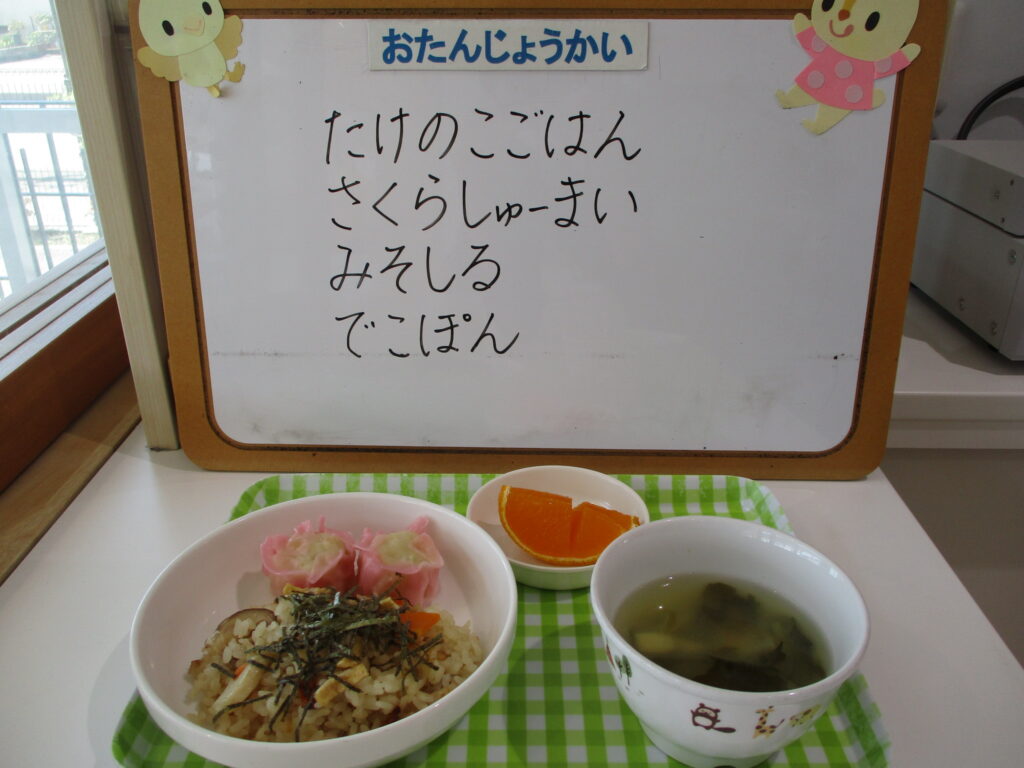 おたんじょうかい
たけのこごはん
さくらしゅーまい
みそしる
でこぽん